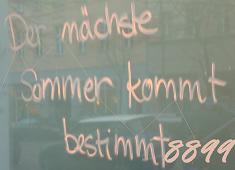 Der nächste
Sommer kommt
bestimmt8899